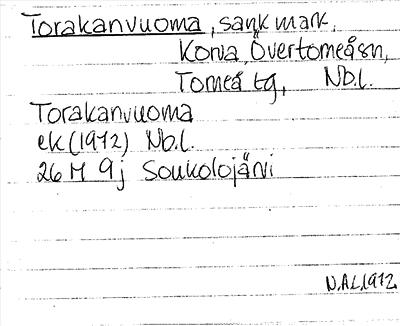 Torakanvuoma, sank mark,
Korva, Övertorneå sn,
Torneå tg, Nb.l.
Torakanvuoma
ek (1972) Nb.l.
26 M 9j Soukolojärvi
N.Al. 1972